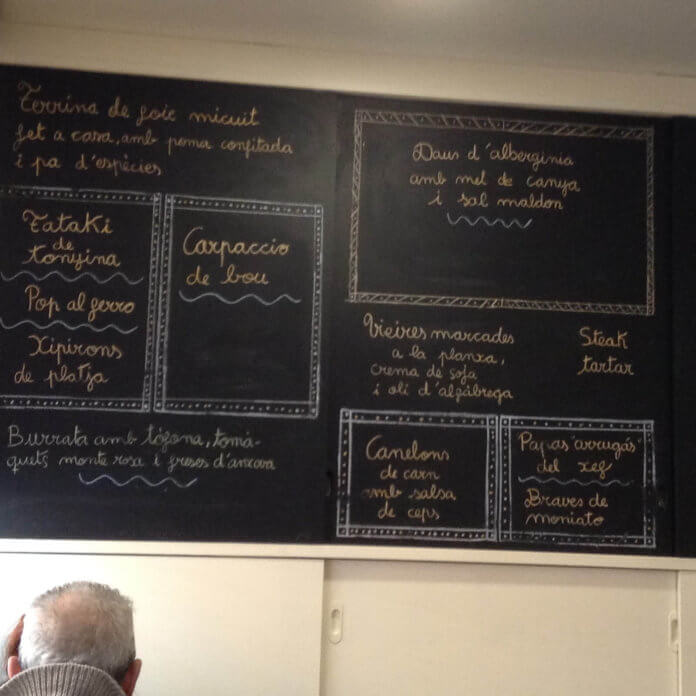 Terrina de foie micuit
fet a casa, amb poma confitada
i pa d'espècies
Tataki
de
tonyina
Pop al ferro
Xipirons
de platja
Carpaccio
de bou
Burrata amb tòfona, tomà-
quets monte rosa i freses d'arxova
Daus d'alberginia
amb mel de canya
i sal maldon
Vieires marcades
a la planxa,
crema de soja
i oli d'alfàbrega
Steak
tartar
Canelons
de carn
amb salsa
de ceps
Papas "arrugás"
del xef
Braves de
moniato